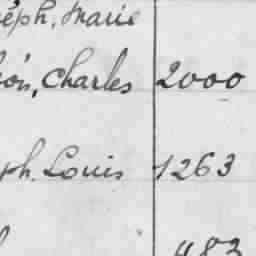 éph, Marie
éon, Charles 2000
ph. Louis 1263
483